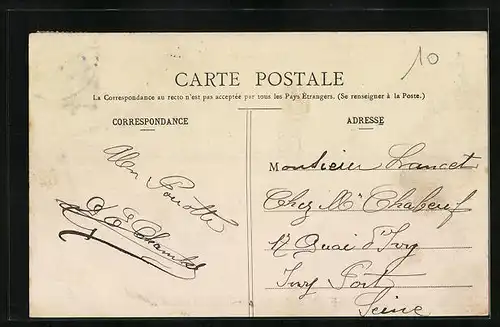 10
CARTE POSTALE
La Correspondance au recto n'est pas acceptée par tous les Pays Etrangers. (Se renseigner à la Poste.)
CORRESPONDANCE
ADRESSE
Monsieur Lancet
Chez Mr Chabeuf
17 Quai d'Ivry
Ivry Port
Seine